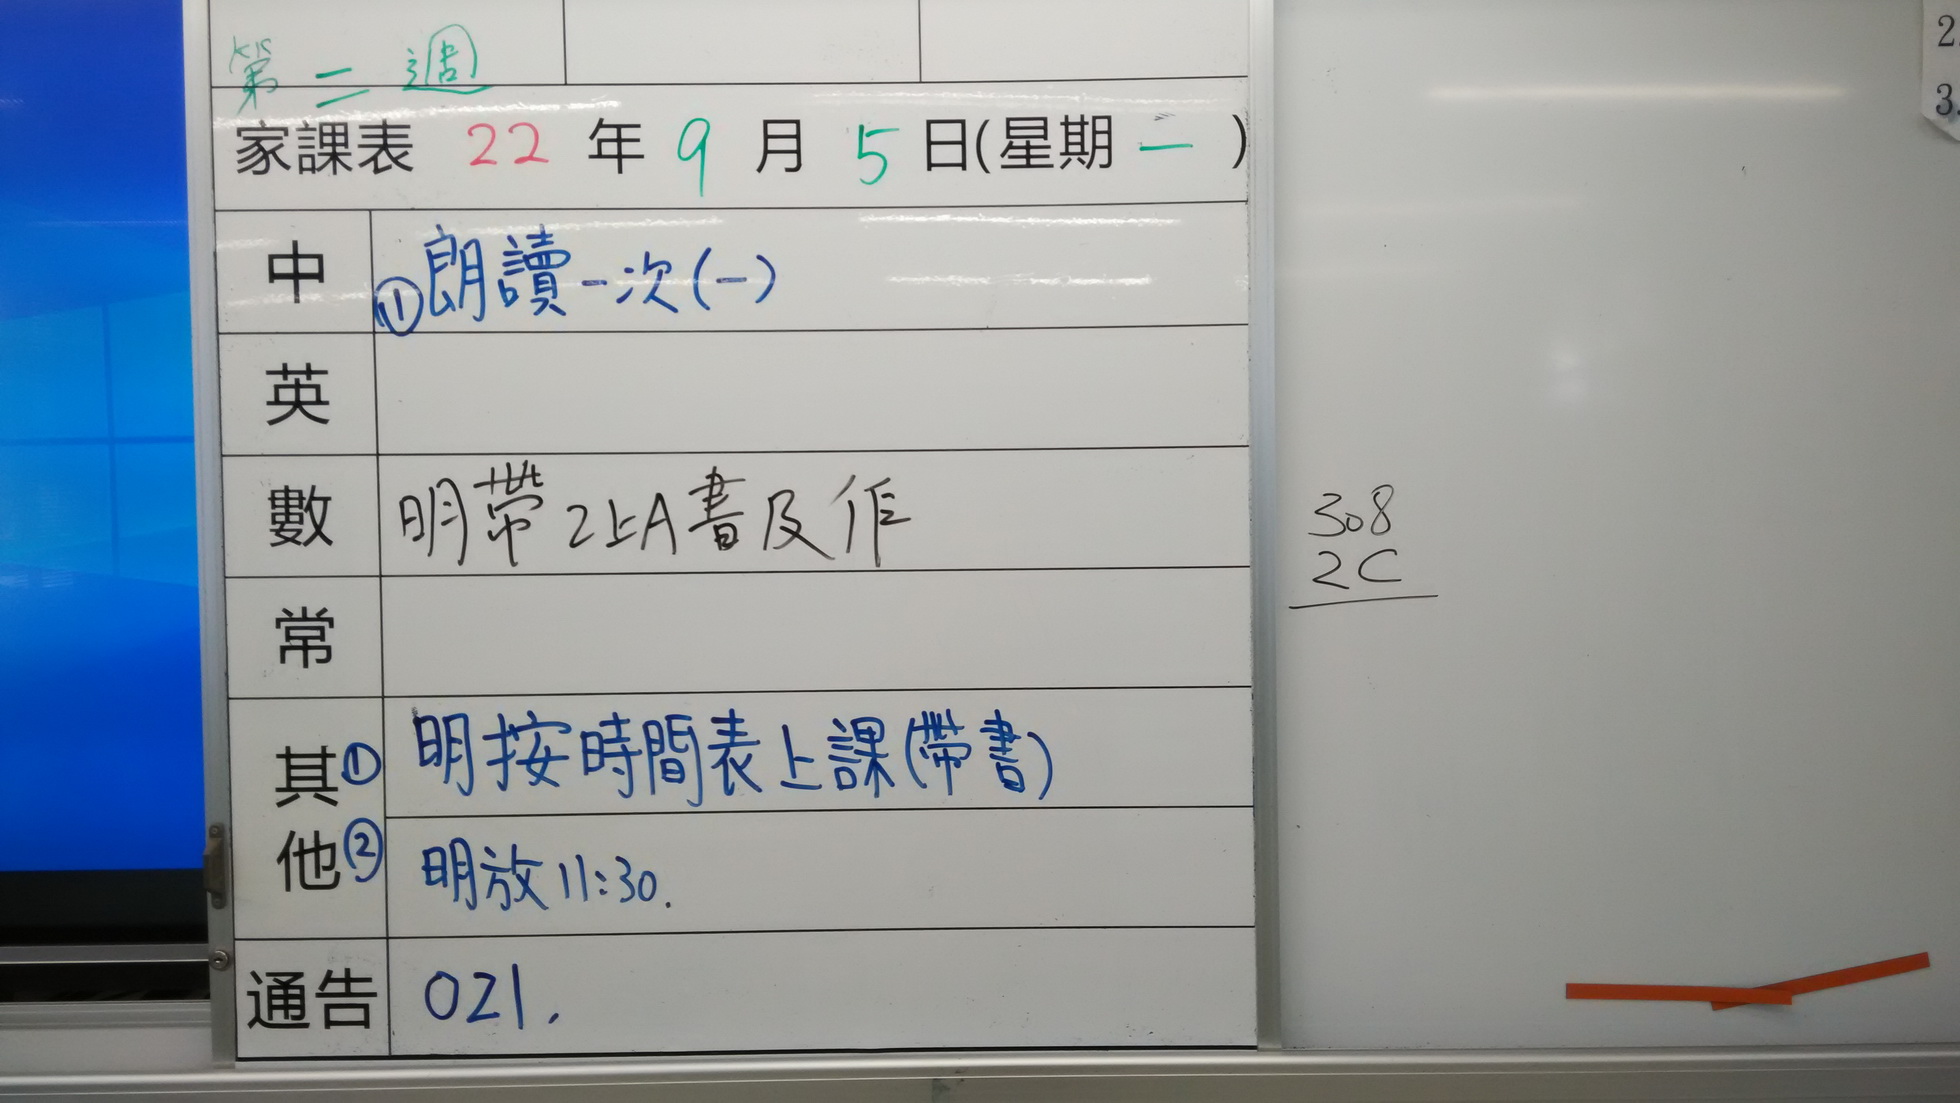 第二週
家課表 22 年 9 月 5 日(星期 一 )
中 ①朗讀一次(一)
英
數 明帶2上A書及作
常
其他 ① 明按時間表上課(帶書)
② 明放11:30.
通告 021.
308
2C
2
3.